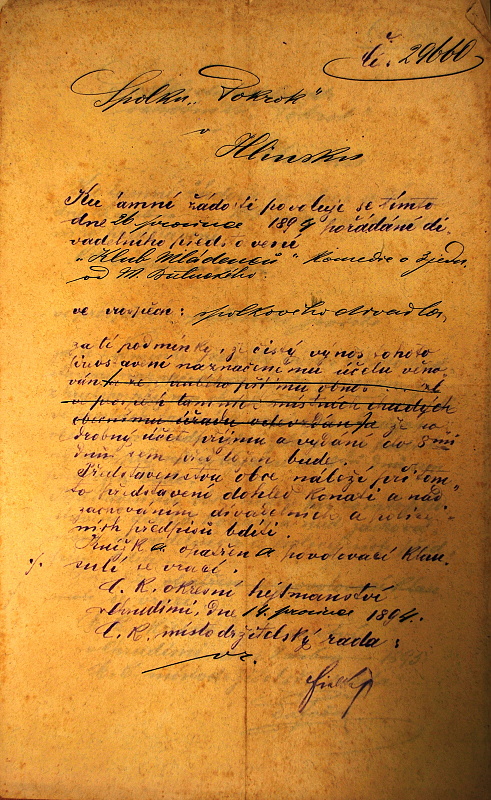 Č. 29660
Spolku „Pokrok“
v
Hlinsku
Ku tamné žádosti povoluje se tímto
dne 26 prosince 1894 pořádání di-
vadelního představení
„Klub Mládenců“ komedie o 3 jedn.
od
ve prospěch: spolkového divadla,
za té podmínky, že čistý výnos tohoto
představení naznačenému účelu věno-
ván
obecnímu úřadu odevzdán a že po-
drobný účet příjmu a vydání do 8 mi
dnů sem předložen bude.
Představenstvu obce náleží při tom-
to představení dohled konati a nad
zachováním divadelních a policej-
ních předpisů bdíti.
Knížka opatřena povolovací klau-
sulí se vrací.
C. K. okresní hejtmanství
v Chrudimi, dne 14. prosince 1894.
C. K. místodržitelský rada: